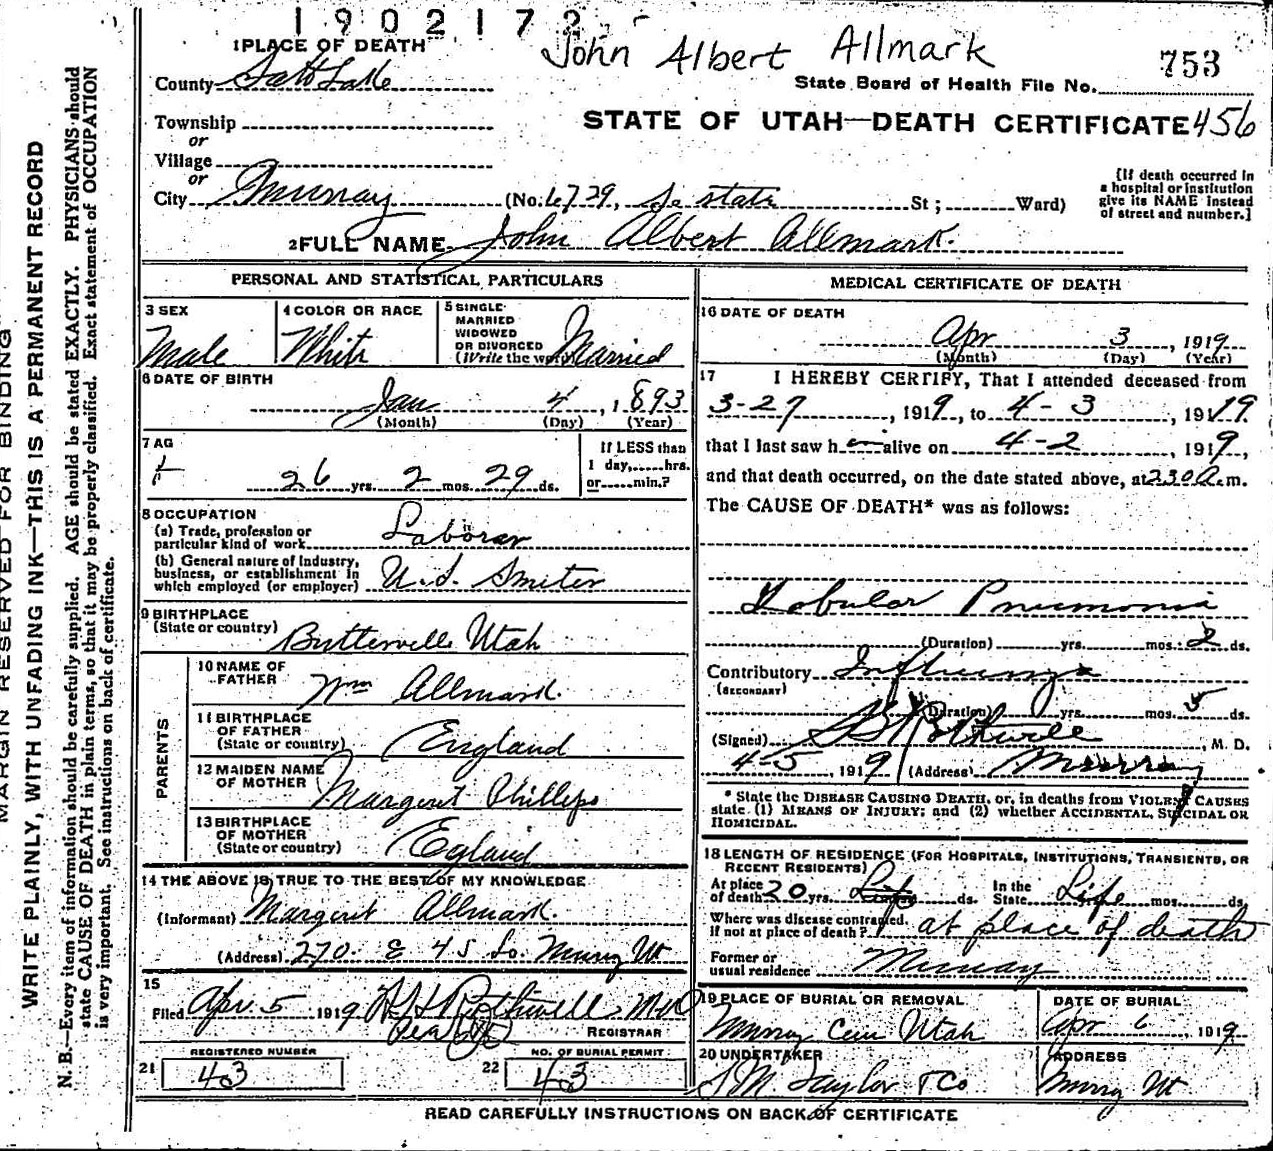 1902172
John Albert Allmark
753
1 PLACE OF DEATH
County Salt Lake
State Board of Health File No.
Township
or
Village
or
City Murray
STATE OF UTAH—DEATH CERTIFICATE 456
(No. 6729, So state St; Ward)
[If death occurred in a hospital or institution give its NAME instead of street and number.]
2 FULL NAME John Albert Allmark.
PERSONAL AND STATISTICAL PARTICULARS
3 SEX
Male
4 COLOR OR RACE
White
5 SINGLE
MARRIED
WIDOWED
OR DIVORCED
(Write the word) Married
6 DATE OF BIRTH
Jan 4, 1893
(Month) (Day) (Year)
7 AG
26 yrs. 2 mos. 29 ds.
If LESS than
1 day,.....hrs.
or.....min.?
8 OCCUPATION
(a) Trade, profession or
particular kind of work Laborer
(b) General nature of industry,
business, or establishment in
which employed (or employer) U.S. Smiter
9 BIRTHPLACE
(State or country) Butterville Utah
PARENTS
10 NAME OF
FATHER Wm Allmark.
11 BIRTHPLACE
OF FATHER
(State or country) England
12 MAIDEN NAME
OF MOTHER Margaret Phillips
13 BIRTHPLACE
OF MOTHER
(State or country) Egland
14 THE ABOVE IS TRUE TO THE BEST OF MY KNOWLEDGE
(Informant) Margaret Allmark.
(Address) 270. E 45 So. Murry Ut
15
Filed Apr. 5 1919 Rothwell MD
REGISTRAR
REGISTERED NUMBER
21 43
NO. OF BURIAL PERMIT
22 43
MEDICAL CERTIFICATE OF DEATH
16 DATE OF DEATH
Apr 3, 1919
(Month) (Day) (Year)
17 I HEREBY CERTIFY, That I attended deceased from
3-27, 1919, to 4-3 1919
that I last saw h alive on 4-2, 1919,
and that death occurred, on the date stated above, at 230 A.m.
The CAUSE OF DEATH* was as follows:
Lobular Pneumonia
(Duration) yrs. mos. 2 ds.
Contributory Influenza
(SECONDARY)
(Duration) yrs. mos. 5 ds.
(Signed) Rothwell, M. D.
4-5, 1919 (Address) Murray
* State the DISEASE CAUSING DEATH, or, in deaths from VIOLENT CAUSES
state (1) MEANS OF INJURY; and (2) whether ACCIDENTAL, SUICIDAL OR
HOMICIDAL.
18 LENGTH OF RESIDENCE (FOR HOSPITALS, INSTITUTIONS, TRANSIENTS, OR
RECENT RESIDENTS)
At place
of death 20 yrs. Life ds. In the
State Life mos. ds.
Where was disease contracted,
if not at place of death? at place of death
Former or
usual residence Murray
19 PLACE OF BURIAL OR REMOVAL
Murray Cem Utah
DATE OF BURIAL
Apr 6, 1919
20 UNDERTAKER
Taylor & Co
ADDRESS
Murry Ut
READ CAREFULLY INSTRUCTIONS ON BACK OF CERTIFICATE
MARGIN RESERVED FOR BINDING
WRITE PLAINLY, WITH UNFADING INK—THIS IS A PERMANENT RECORD
N. B.—Every item of information should be carefully supplied. AGE should be stated EXACTLY. PHYSICIANS should
state CAUSE OF DEATH in plain terms, so that it may be properly classified. Exact statement of OCCUPATION
is very important. See instructions on back of certificate.